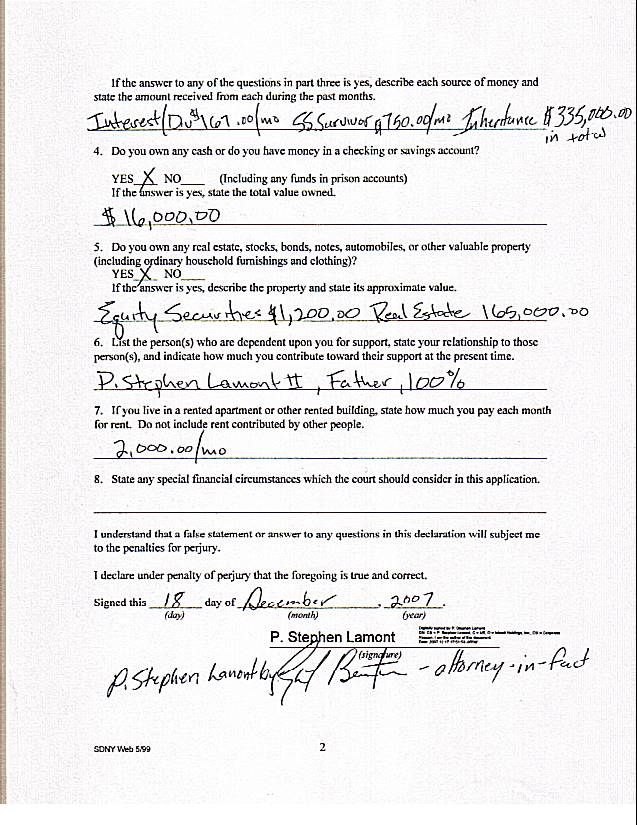 If the answer to any of the questions in part three is yes, describe each source of money and
state the amount received from each during the past months.
Interest/Div $167.00/mo SS Survivor $750.00/mo Inheritance $335,000.00
in total
4. Do you own any cash or do you have money in a checking or savings account?
YES X NO (Including any funds in prison accounts)
If the answer is yes, state the total value owned.
$16,000.00
5. Do you own any real estate, stocks, bonds, notes, automobiles, or other valuable property
(including ordinary household furnishings and clothing)?
YES X NO
If the answer is yes, describe the property and state its approximate value.
Equity Securities $1,200.00 Real Estate 165,000.00
6. List the person(s) who are dependent upon you for support, state your relationship to those
person(s), and indicate how much you contribute toward their support at the present time.
P. Stephen Lamont II, Father, 100%
7. If you live in a rented apartment or other rented building, state how much you pay each month
for rent. Do not include rent contributed by other people.
2,000.00/mo
8. State any special financial circumstances which the court should consider in this application.
I understand that a false statement or answer to any questions in this declaration will subject me
to the penalties for perjury.
I declare under penalty of perjury that the foregoing is true and correct.
Signed this 18 day of December, 2007.
(day) (month) (year)
P. Stephen Lamont
(signature)
P. Stephen Lamont by - attorney-in-fact
SDNY Web 5/99
2